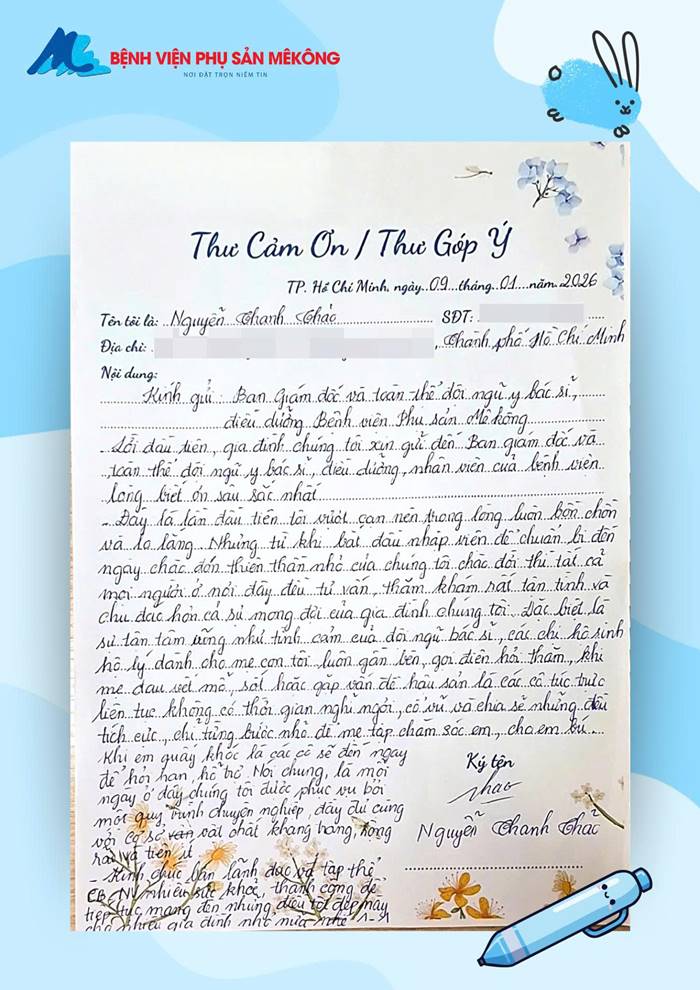 BỆNH VIỆN PHỤ SẢN MÊKÔNG
NƠI ĐẶT TRỌN NIỀM TIN
Thư Cảm Ơn / Thư Góp Ý
TP. Hồ Chí Minh, ngày 09 tháng 01 năm 2026
Tên tôi là: Nguyễn Thanh Thảo SĐT:
Địa chỉ: , Thành phố Hồ Chí Minh
Nội dung:
Kính gửi: Ban Giám đốc và toàn thể đội ngũ y bác sĩ,
điều dưỡng Bệnh viện Phụ sản Mê Kông
Lời đầu tiên, gia đình chúng tôi xin gửi đến Ban giám đốc và
toàn thể đội ngũ y bác sĩ, điều dưỡng, nhân viên của bệnh viện
lòng biết ơn sâu sắc nhất
- Đây là lần đầu tiên tôi vượt cạn nên trong lòng luôn bồn chồn
và lo lắng. Nhưng từ khi bắt đầu nhập viện để chuẩn bị đến
ngày chào đón thiên thần nhỏ của chúng tôi chào đời thì tất cả
mọi người ở nơi đây đều tư vấn, thăm khám rất tận tình và
chu đáo hơn cả sự mong đợi của gia đình chúng tôi. Đặc biệt, là
sự tận tâm cũng như tình cảm của đội ngũ bác sĩ, các chị hộ sinh
hộ lý dành cho mẹ con tôi luôn gần bên, gọi điện hỏi thăm, khi
mẹ đau vết mổ, sốt hoặc gặp vấn đề hậu sản là các cô túc trực
liên tục không có thời gian nghỉ ngơi, cổ vũ và chia sẽ những điều
tích cực, chỉ từng bước nhỏ để mẹ tập chăm sóc em, cho em bú...
Khi em quấy khóc là các cô sẽ đến ngay
để hỏi han, hỗ trợ. Nói chung, là mỗi
ngày ở đây chúng tôi được phục vụ bởi
một quy trình chuyên nghiệp, đầy đủ cùng
với cơ sở vật chất khang trang, rộng
rãi và tiện
- Kính chúc ban lãnh đạo và tập thể
CB-NV nhiều sức khoẻ, thành công để
tiếp tục mang đến những điều tốt đẹp này
cho nhiều gia đình nhỏ nữa nhé
Ký tên
Thao
Nguyễn Thanh Thảo